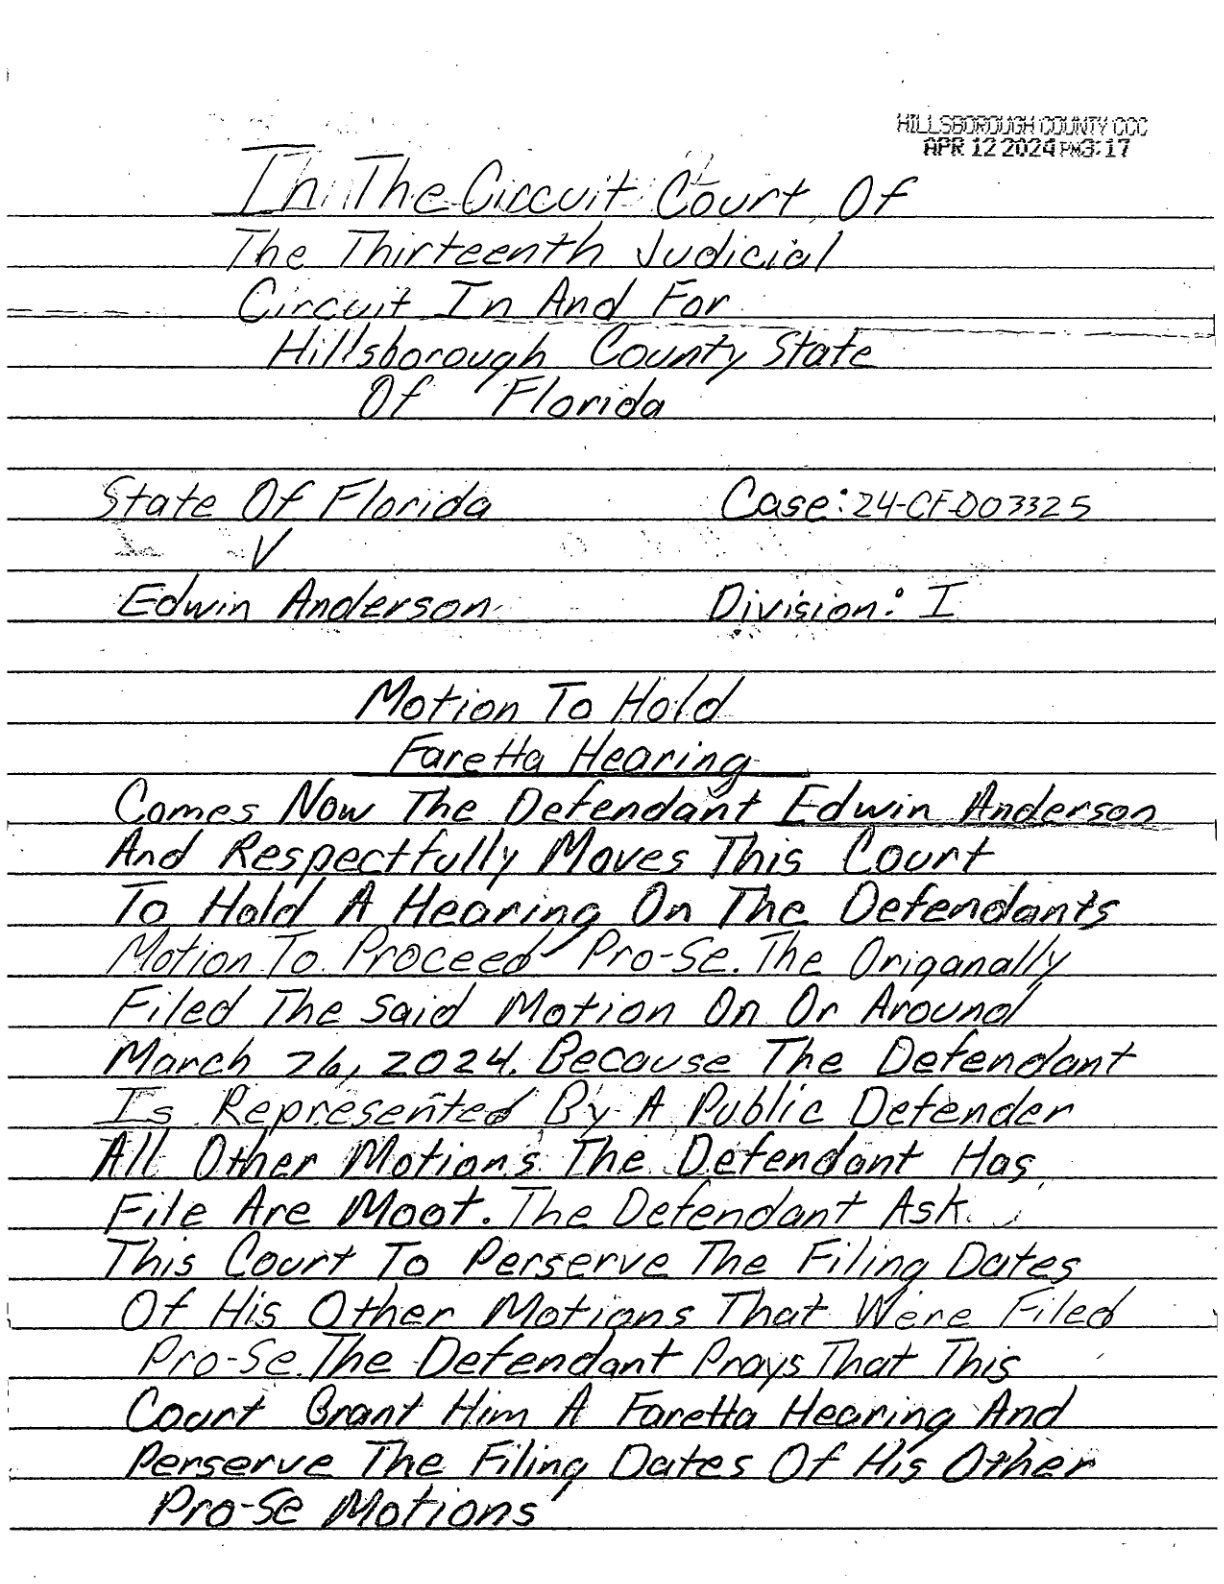 HILLSBOROUGH COUNTY CCC
APR 12 2024 PM3:17
In The Circuit Court Of
The Thirteenth Judicial
Circuit In And For
Hillsborough County State
Of Florida
State Of Florida Case: 24-CF-003325
V
Edwin Anderson Division: I
Motion To Hold
Faretta Hearing
Comes Now The Defendant Edwin Anderson
And Respectfully Moves This Court
To Hold A Hearing On The Defendants
Motion To Proceed Pro-Se. The Origanally
Filed The Said Motion On Or Around
March 26, 2024. Because The Defendant
Is Represented By A Public Defender
All Other Motions The Defendant Has
File Are Moot. The Defendant Ask
This Court To Perserve The Filing Dates
Of His Other Motions That Were Filed
Pro-Se. The Defendant Prays That This
Court Grant Him A Faretta Hearing And
Perserve The Filing Dates Of His Other
Pro-Se Motions